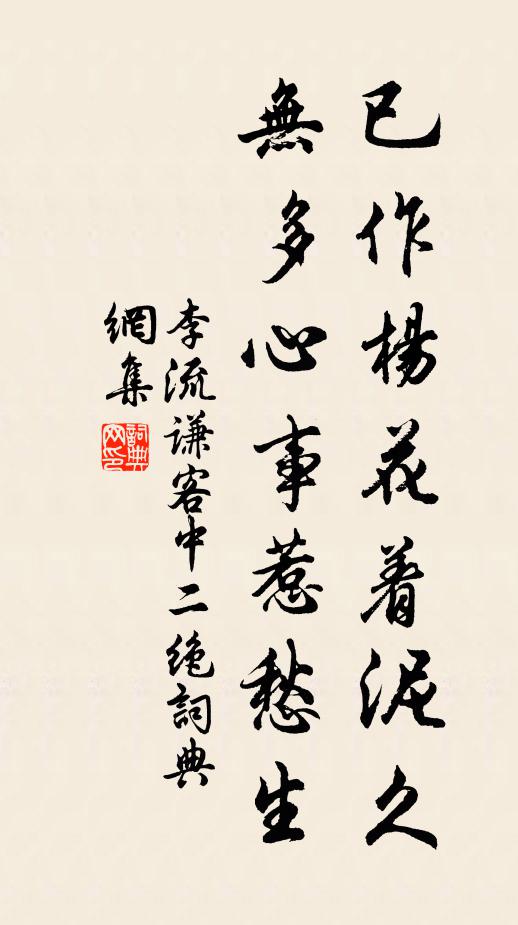 已作楊花着泥久
無多心事惹愁生
李流謙客中二絶詞典
網集
詞典網印